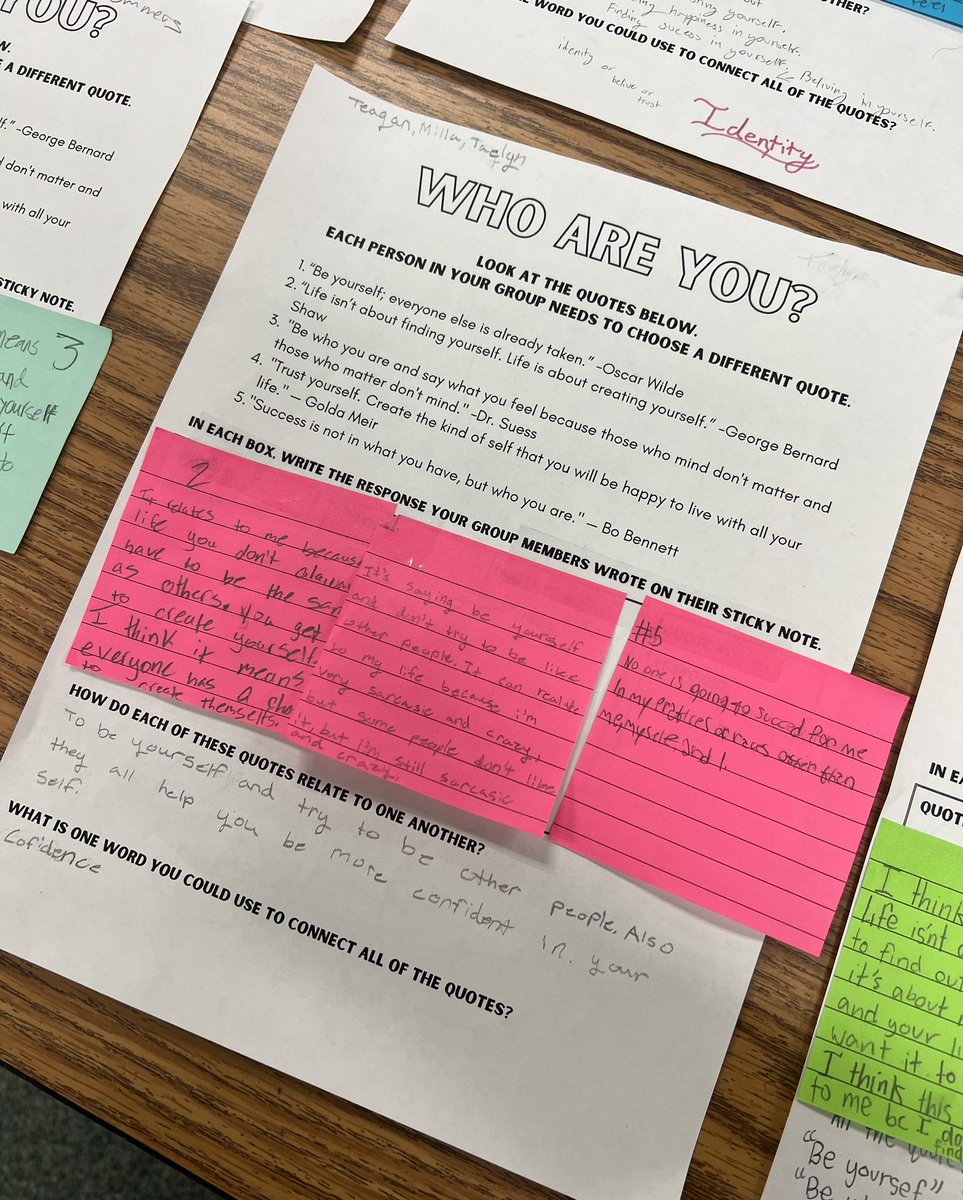 ommers
YOU?
W.
A DIFFERENT QUOTE.
lf." -George Bernard
d don't matter and
with all your
STICKY NOTE.
means 3
and
yourself
to
yourself.
happiness in yourself.
Finding sucess in yourself. Beliving in yourself.
OTHER?
WORD YOU COULD USE TO CONNECT ALL OF THE QUOTES?
idenity or
belive or
trust
Identity
Teagan, Milla, Taelyn
WHO ARE YOU?
LOOK AT THE QUOTES BELOW.
EACH PERSON IN YOUR GROUP NEEDS TO CHOOSE A DIFFERENT QUOTE.
1. "Be yourself; everyone else is already taken." -Oscar Wilde
2. "Life isn't about finding yourself. Life is about creating yourself." -George Bernard
Shaw
3. "Be who you are and say what you feel because those who mind don't matter and
those who matter don't mind." -Dr. Suess
4. "Trust yourself. Create the kind of self that you will be happy to live with all your
life." — Golda Meir
5. "Success is not in what you have, but who you are." — Bo Bennett
IN EACH BOX, WRITE THE RESPONSE YOUR GROUP MEMBERS WROTE ON THEIR STICKY NOTE.
2
It relates to me because
life you don't
have to be the
as others. You get
to create yourself.
I think it means
everyone has a
to create themselves.
It's saying be yourself
and don't try to be like
other people. It can realate
to my life because i'm
very sarcasic and crazy,
but some people don't like
it, but I'm still sarcasic
and crazy.
#5
No one is going to succed for me
In my or
me, myself, and I
HOW DO EACH OF THESE QUOTES RELATE TO ONE ANOTHER?
To be yourself and try to be other people. Also
they all help you be more confident in your
self.
WHAT IS ONE WORD YOU COULD USE TO CONNECT ALL OF THE QUOTES?
Cofidence
IN EA
QUOT
I think
Life isn't
to find out
it's about
and your li
want it to
I think this
to me bc I do
find
All the quote
"Be yourself"
"Be